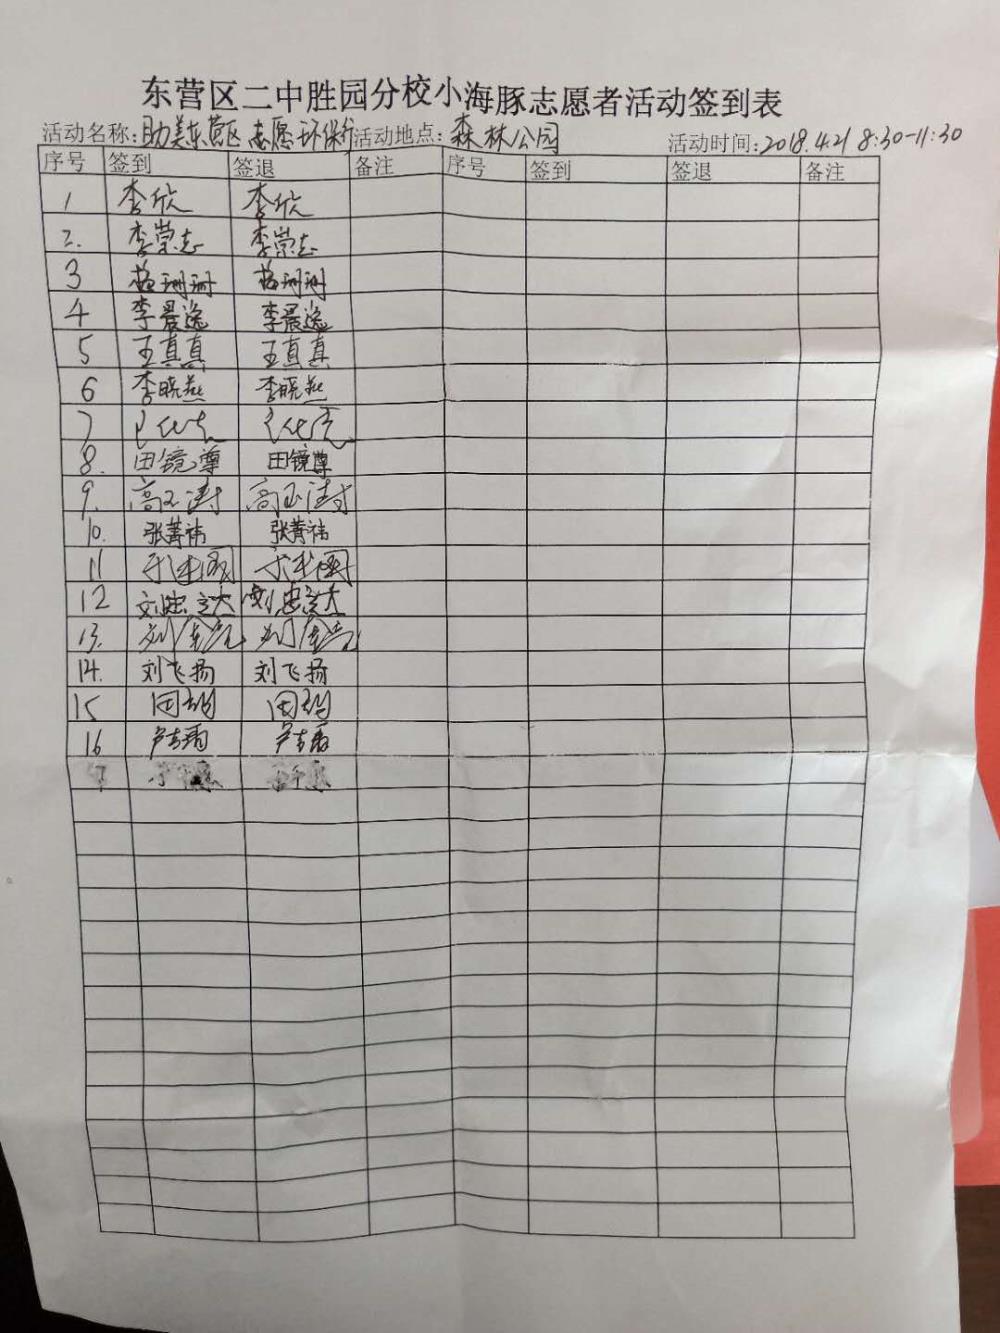 东营区二中胜园分校小海豚志愿者活动签到表
活动名称:助美东营区志愿环保行 活动地点:森林公园 活动时间:2018.4.21 8:30-11:30
序号 签到 签退 备注 序号 签到 签退 备注
1 李欣 李欣
2. 李荣志 李荣志
3 杨珊珊 杨珊珊
4 李晨逸 李晨逸
5 王真真 王真真
6 李晓燕 李晓燕
7
8. 田镜尊 田镜尊
9. 高玉涛 高玉涛
10. 张菁祎 张菁祎
11
12 刘忠
13. 刘
14. 刘飞扬 刘飞扬
15 田
16 芦